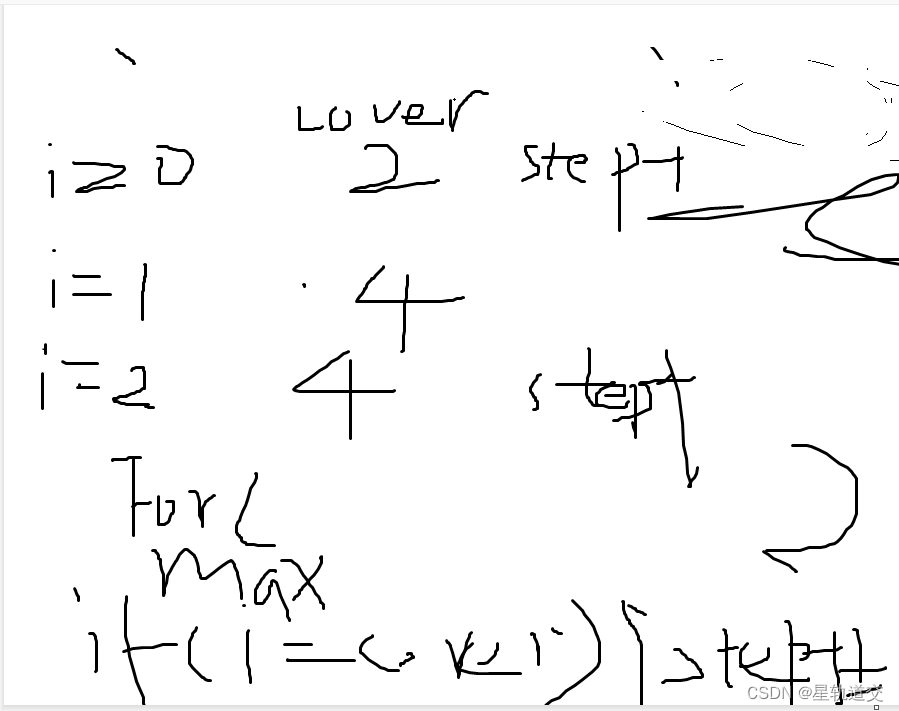 cover
i=0 2 step+
i=1 4
i=2 4 step+
For (
max
if(i=cover){step++
CSDN @星轨道交